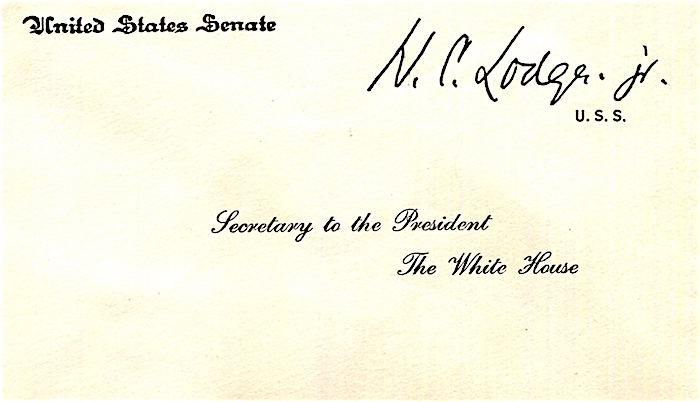 United States Senate
H. C. Lodge. jr.
U. S. S.
Secretary to the President
The White House